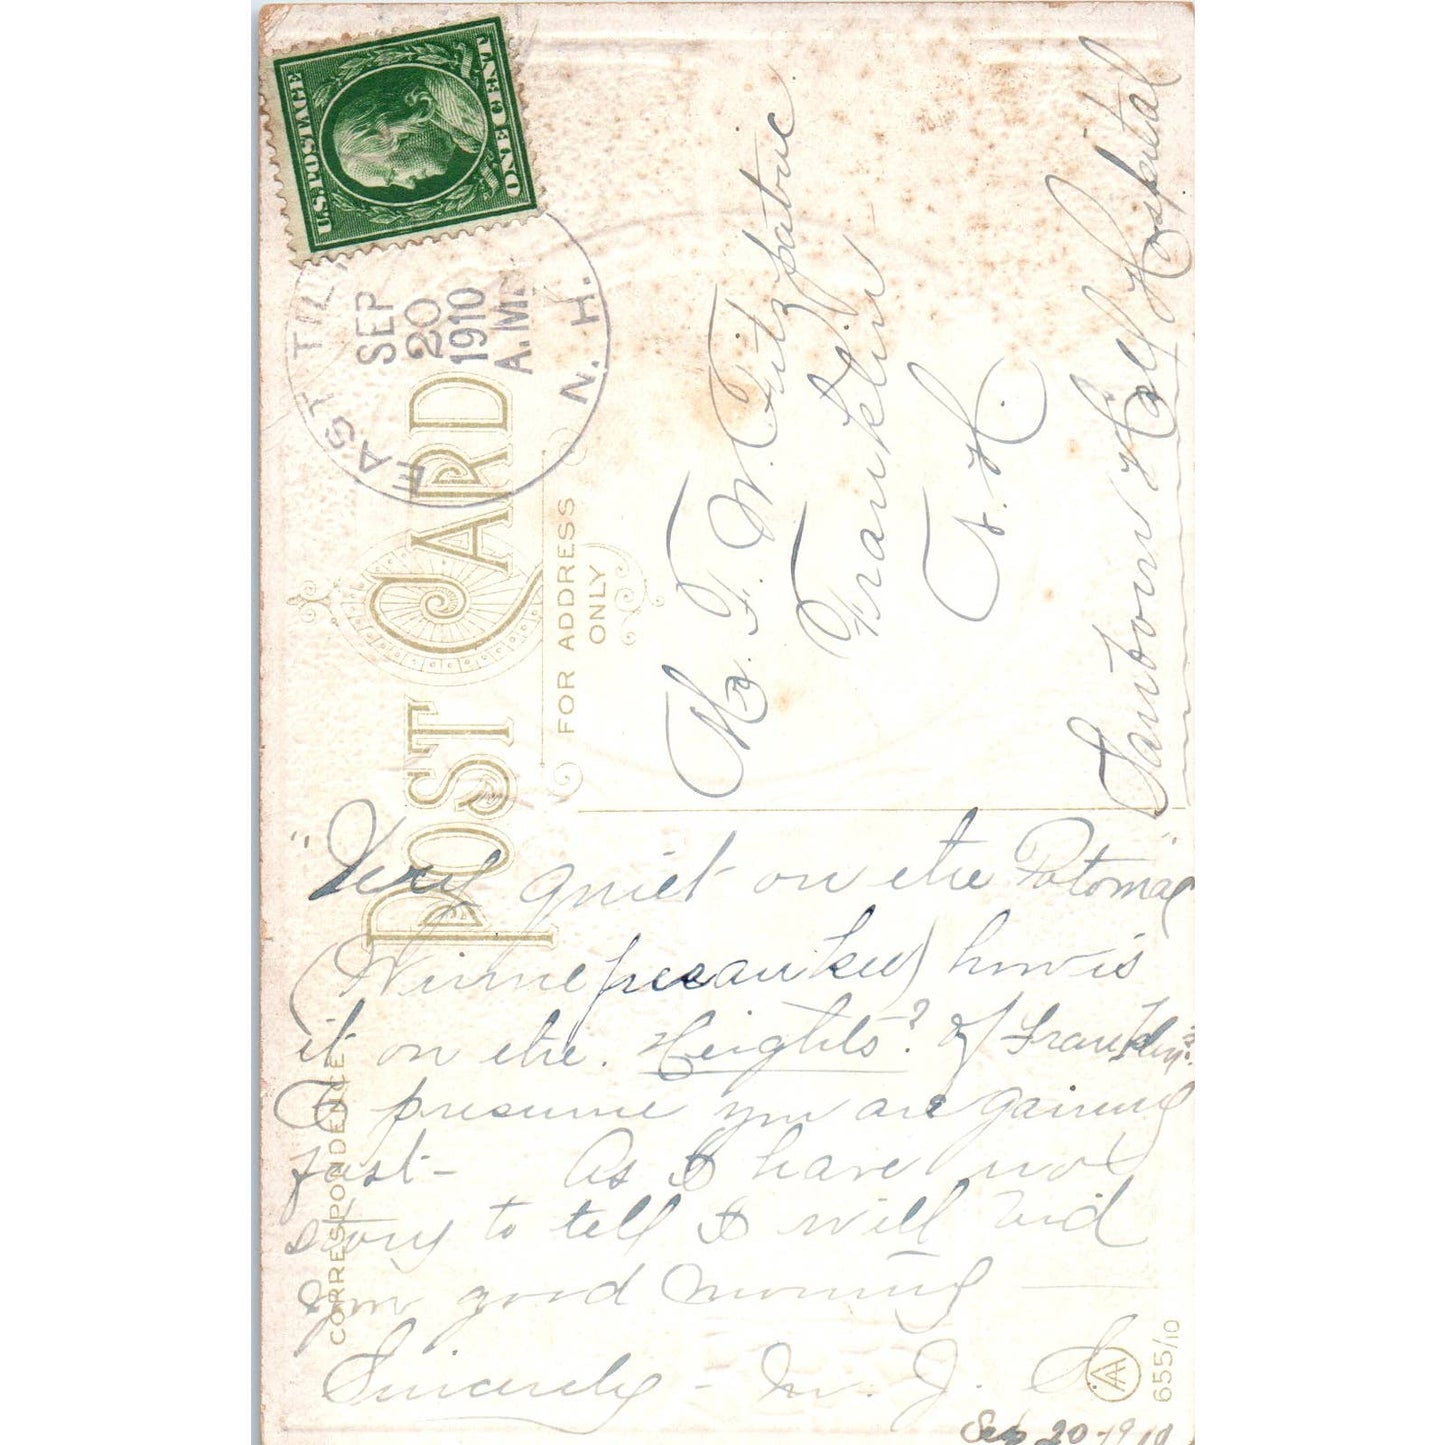 U.S. POSTAGE
ONE CENT
EAST TIL
SEP
20
1910
A.M.
N. H.
POST CARD
FOR ADDRESS
ONLY
Mr. F. W. Fitzpatric
Franklin
N. H.
Hospital
CORRESPONDENCE
"Very quiet on the Potomac"
(Winnepesaukee) how is
it on the. Heights? of Franklin?
I presume you are gaining
fast - As I have not
story to tell I will bid
you good morning —
Sincerely - M. J. S.
Sep 20-1910
AA
655/10